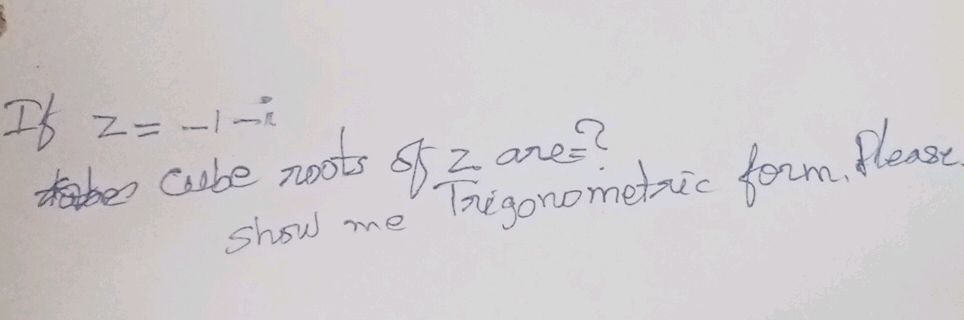 If z = -1-i
Cube roots of z are=?
show me Trigonometric form. Please.